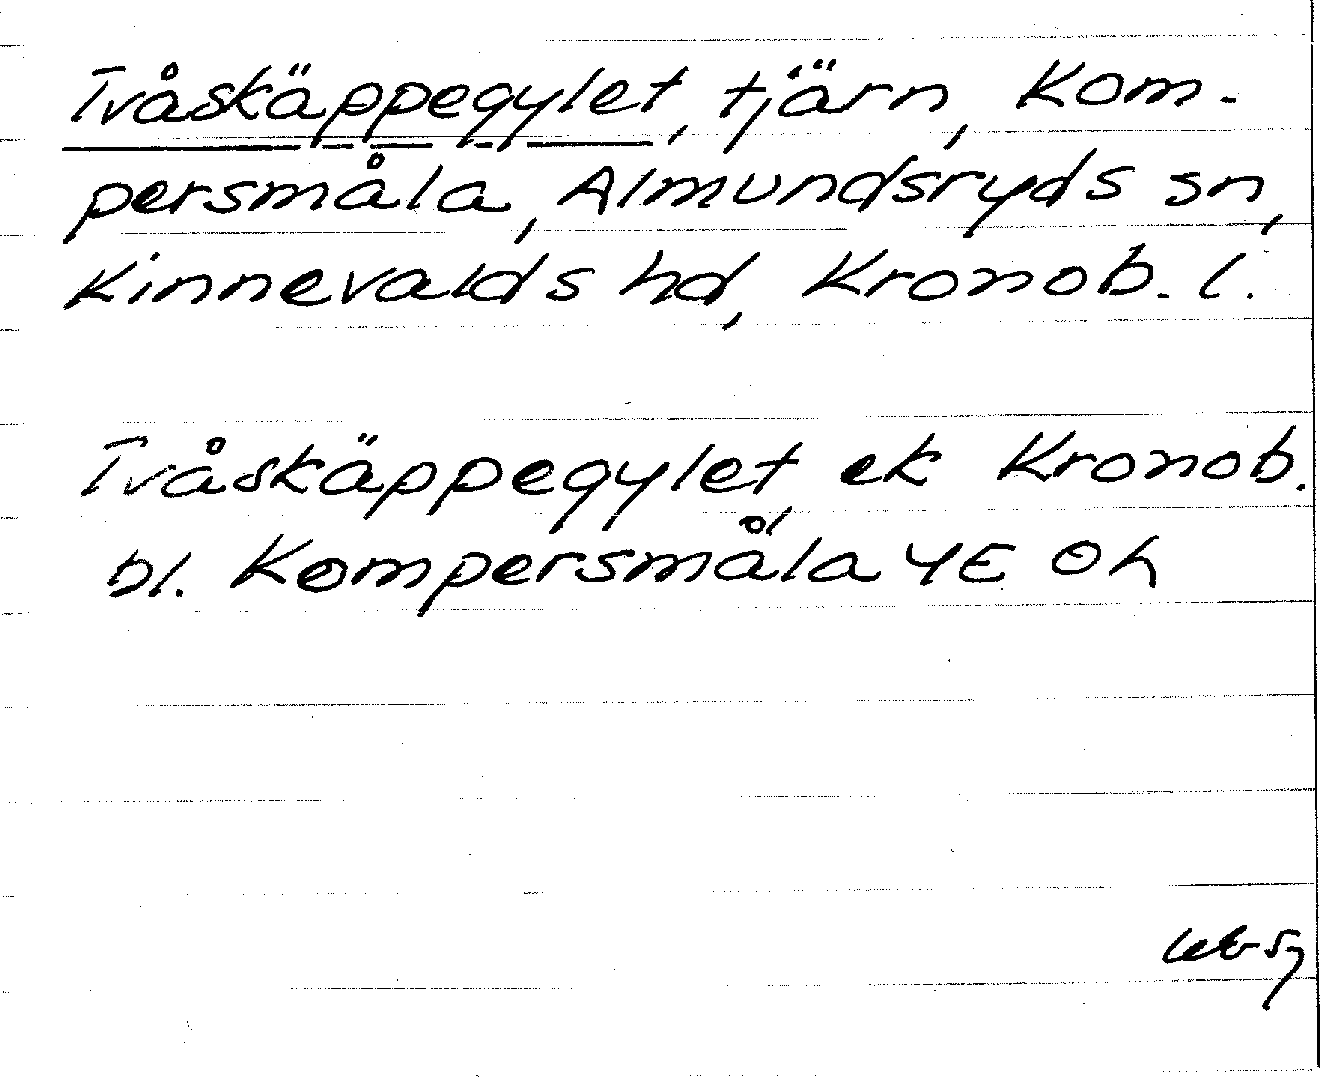 Tvåskäppegylet, tjärn, Kom-
persmåla, Almundsryds sn,
Kinnevalds hd, Kronob. l.
Tvåskäppegylet ek Kronob.
bl. Kompersmåla 4E 0h